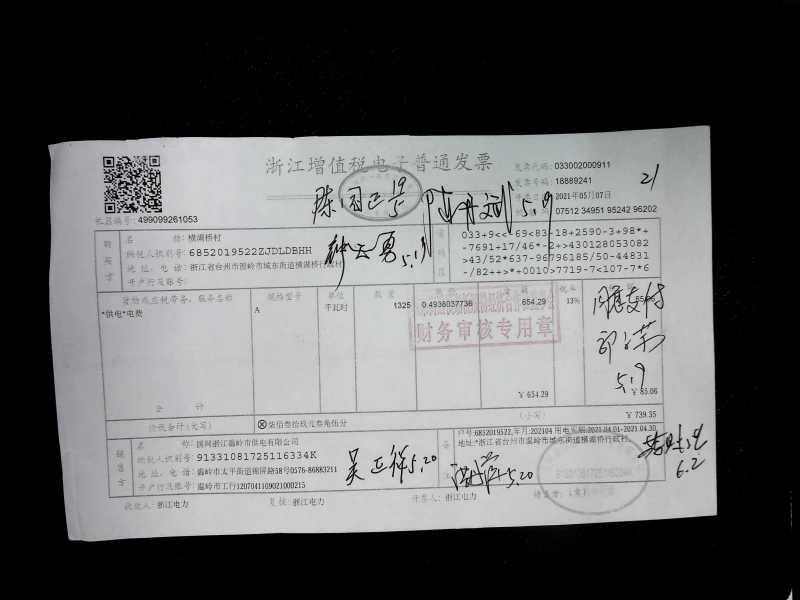 浙江增值税电子普通发票
发票代码: 033002000911
发票号码: 18889241
开票日期: 2021年05月07日
校验码: 07512 34951 95242 96202
21
机器编号: 499099261053
购买方
名 称: 横湖桥村
纳税人识别号: 6852019522ZJDLDBHH
地 址、电 话: 浙江省台州市温岭市城东街道横湖桥行政村
开户行及账号:
密码区
033+9<<-69<83-18+2590-3+98*+
-7691+17/46*-2+>430128053082
>43/52*637-96796185/50-44831
-/82++>*+0010>7719-7<107-7*6
5.19
5.19
货物或应税劳务、服务名称 规格型号 单位 数 量 单 价 金 额 税率 税 额
*供电*电费 A 千瓦时 1325 0.4938037736 654.29 13% 85.06
财务审核专用章
同意支付
5.19
合 计 ￥654.29 ￥85.06
价税合计(大写) ⊗柒佰叁拾玖元叁角伍分 (小写) ￥739.35
销售方
名 称: 国网浙江温岭市供电有限公司
纳税人识别号: 91331081725116334K
地 址、电 话: 温岭市太平街道锦屏路58号0576-86883211
开户行及账号: 温岭市工行1207041109021000215
备注
户号:6852019522,年月:202104 用电实期:2021.04.01-2021.04.30
地址:*浙江省台州市温岭市城东街道横湖桥行政村
吴正祥5.20
5.20
6.2
收款人: 浙江电力 复核: 浙江电力 开票人: 浙江电力 销售方: (章)